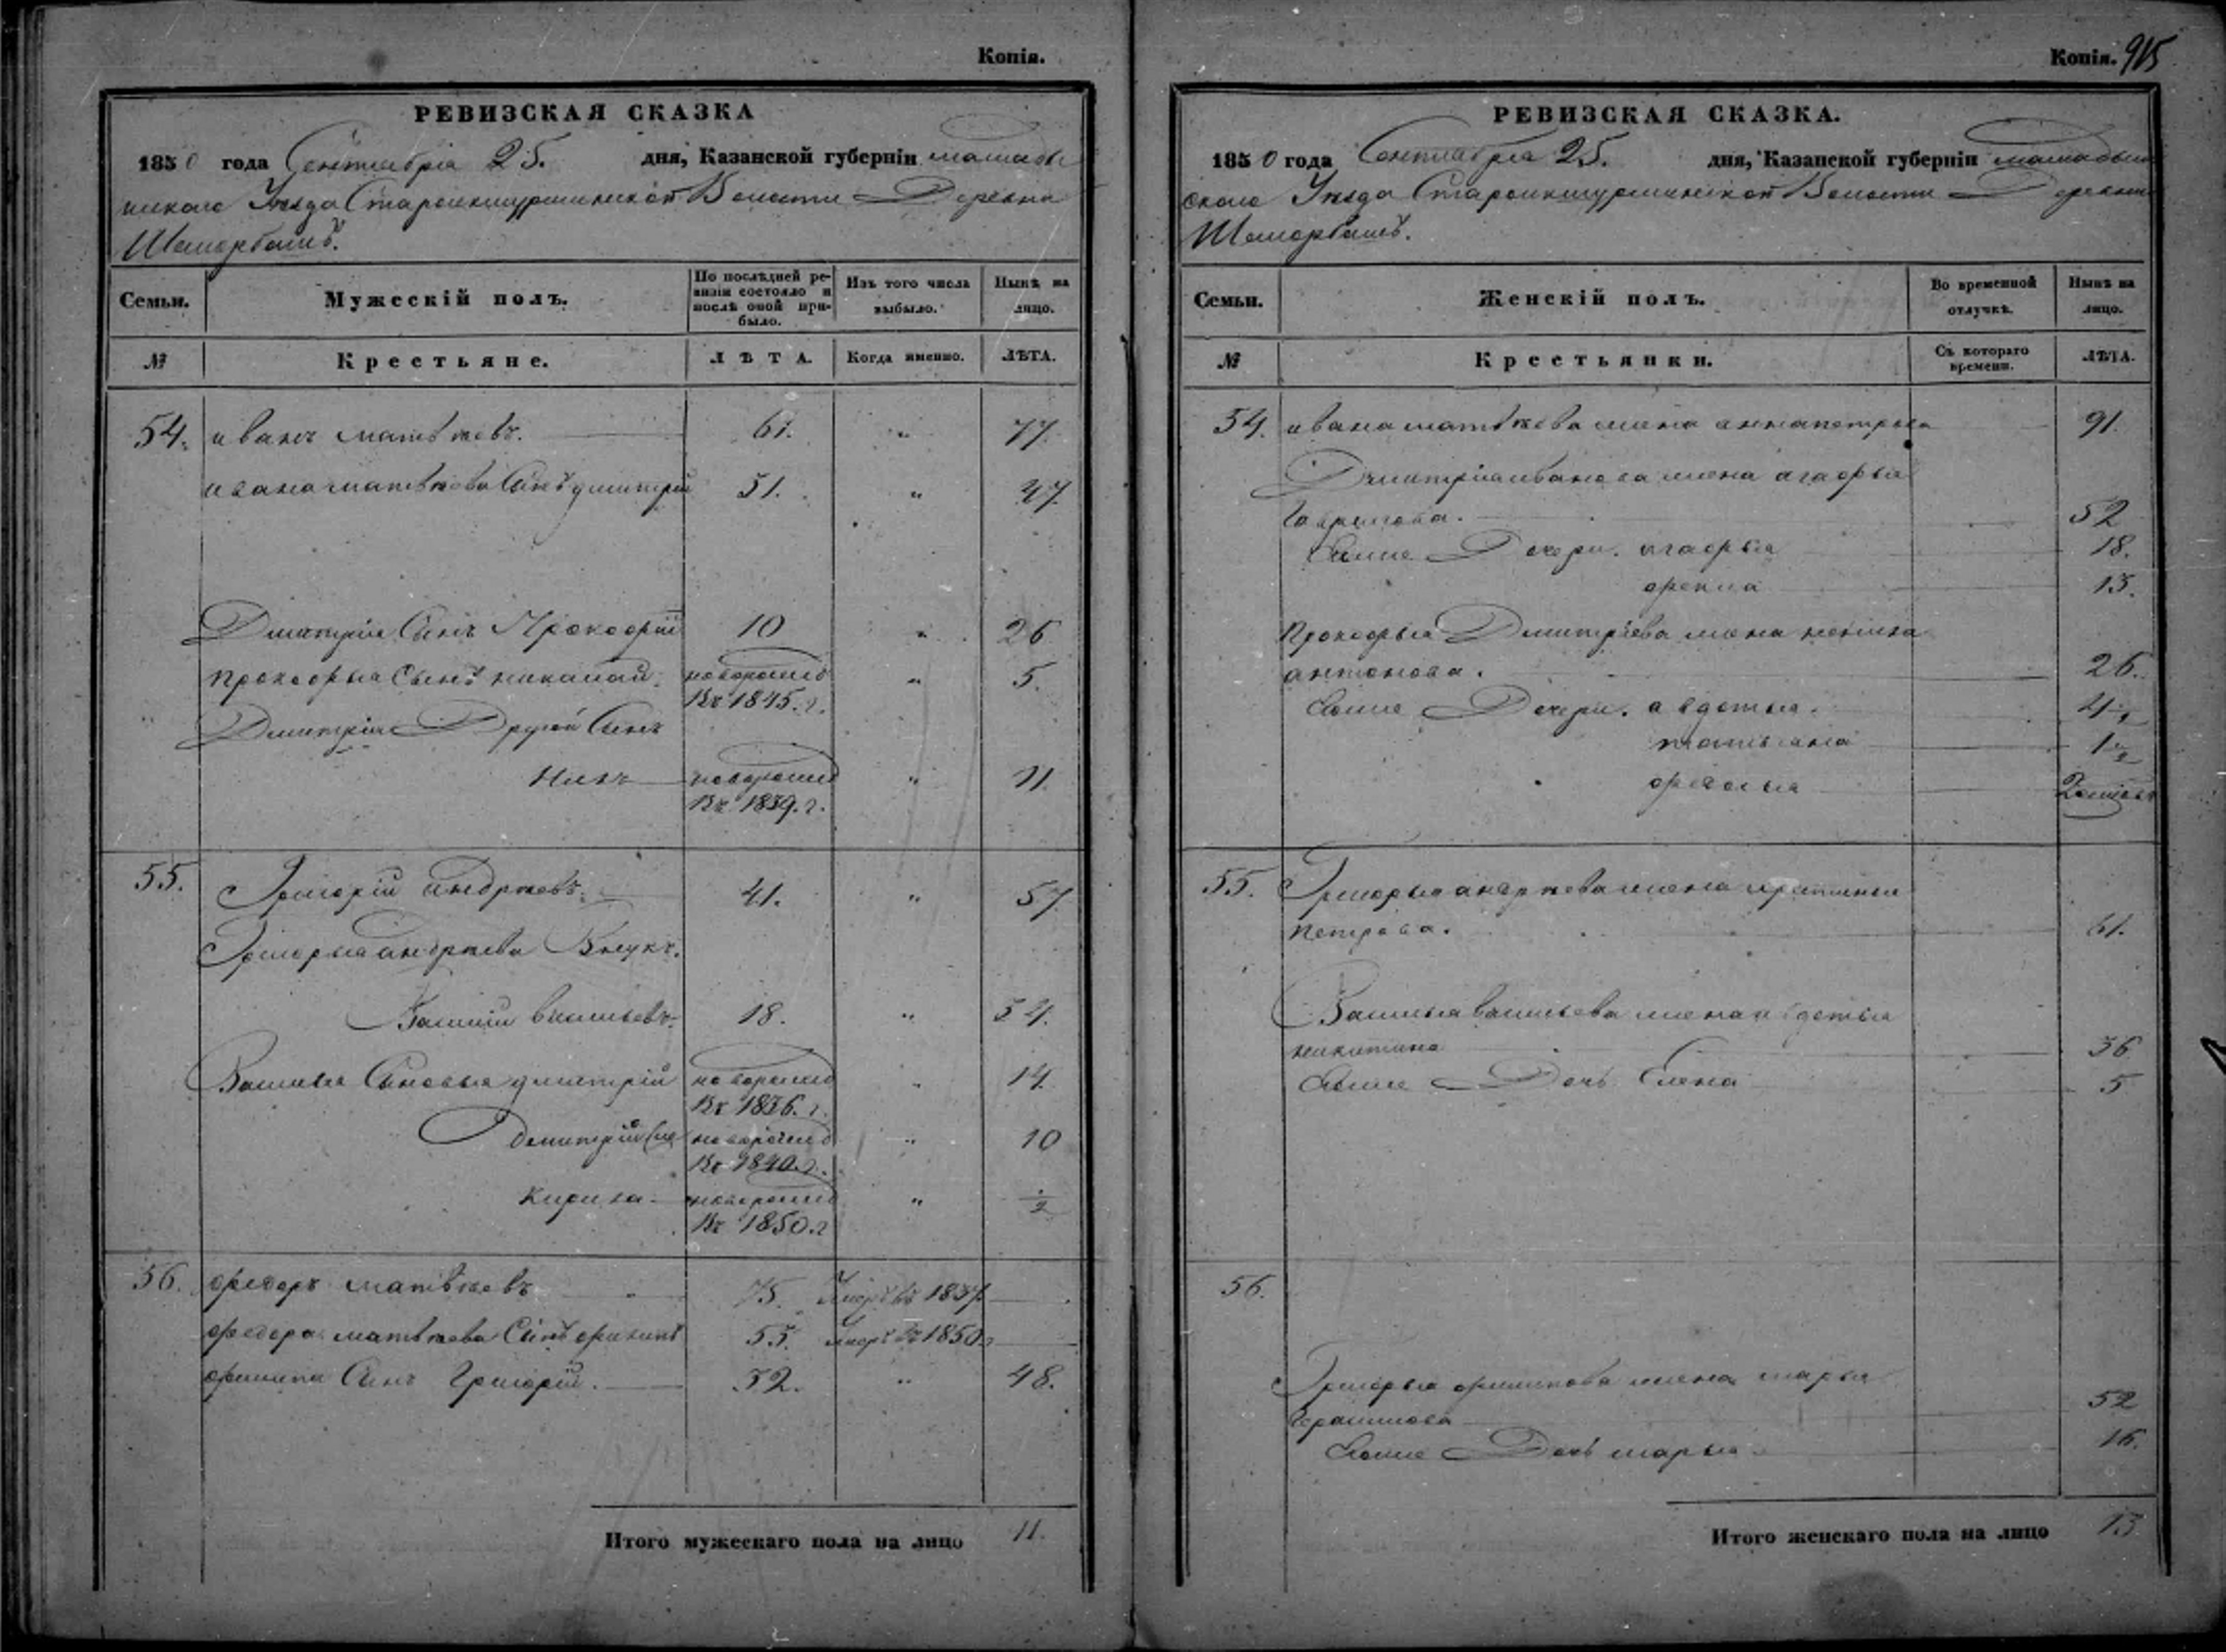 Копія.
РЕВИЗСКАЯ СКАЗКА
1850 года Сентября 25. дня, Казанской губерніи мамады
шскаго Уѣзда Староикшурминской Волости Деревни
Шеморбашъ.
Семьи. Мужескій полъ. По послѣдней ревизіи состояло и послѣ оной прибыло. Изъ того числа выбыло. Нынѣ на лицо.
№ Крестьяне. ЛѢТА. Когда именно. ЛѢТА.
54. иванъ матвѣевъ. 61. „ 77.
ивана матвѣева Сынъ дмитрій 31. „ 47.
Дмитрія Сынъ Прокофій 10 „ 26
прокофья Сынъ николай. новорожд „ 5.
Въ 1845. г.
Дмитрія Другой Сынъ
новорожд „ 11.
Въ 1839. г.
55. Григорій андрѣевъ. 41. „ 57.
Григорья андрѣева Внукъ.
Василій васильевъ. 18. „ 34.
Василья Сыновья дмитрій новорожд „ 14.
Въ 1836. г.
Дмитрій новорожд „ 10
Въ 1840. г.
Кирила новорожд „ ½
Въ 1850. г
56. федоръ матвѣевъ 75. Умеръ въ 1837
федора матвѣева Сынъ филипъ 53. Умеръ въ 1850 г
филипа Сынъ Григорій. 32. „ 48.
Итого мужескаго пола на лицо 11.
Копія. 915
РЕВИЗСКАЯ СКАЗКА.
1850 года Сентября 25. дня, Казанской губерніи мамадыш
скаго Уѣзда Староикшурминской Волости Деревни
Шеморбашъ.
Семьи. Женскій полъ. Во временной отлучкѣ. Нынѣ на лицо.
№ Крестьянки. Съ котораго времени. ЛѢТА.
54. ивана матвѣева жена анна петрова 91.
Дмитрія иванова жена агафья
Гаврилова. 52
Ихъ Дочери. агафья 18.
фекла 13.
Прокофья Дмитріева жена
антонова. 26.
Ихъ Дочери. авдотья. 4½
татьяна 1½
федосья
55. Григорья андрѣева жена
петрова. 61.
Василья васильева жена авдотья
никитина 36
Ихъ Дочь Елена 5
56.
Григорья филипова жена марья
Герасимова 52
Ихъ Дочь марья 16.
Итого женскаго пола на лицо 13